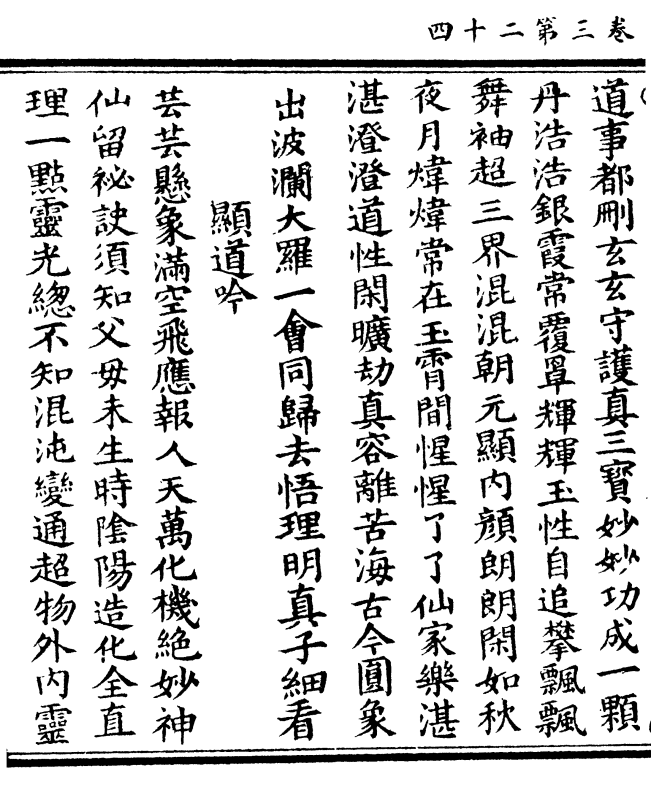 卷三第二十四
道事都刪玄玄守護真三寶妙妙功成一顆
丹浩浩銀霞常覆罩輝輝玉性自追攀飄飄
舞袖超三界混混朝元顯內顔朗朗閑如秋
夜月煒煒常在玉霄間惺惺了了仙家樂湛
湛澄澄道性閑曠劫真容離苦海古今圓象
出波瀾大羅一會同歸去悟理明真子細看
顯道吟
芸芸懸象滿空飛應報人天萬化機絶妙神
仙留祕訣須知父毋未生時陰陽造化全直
理一點靈光緫不知混沌變通超物外內靈